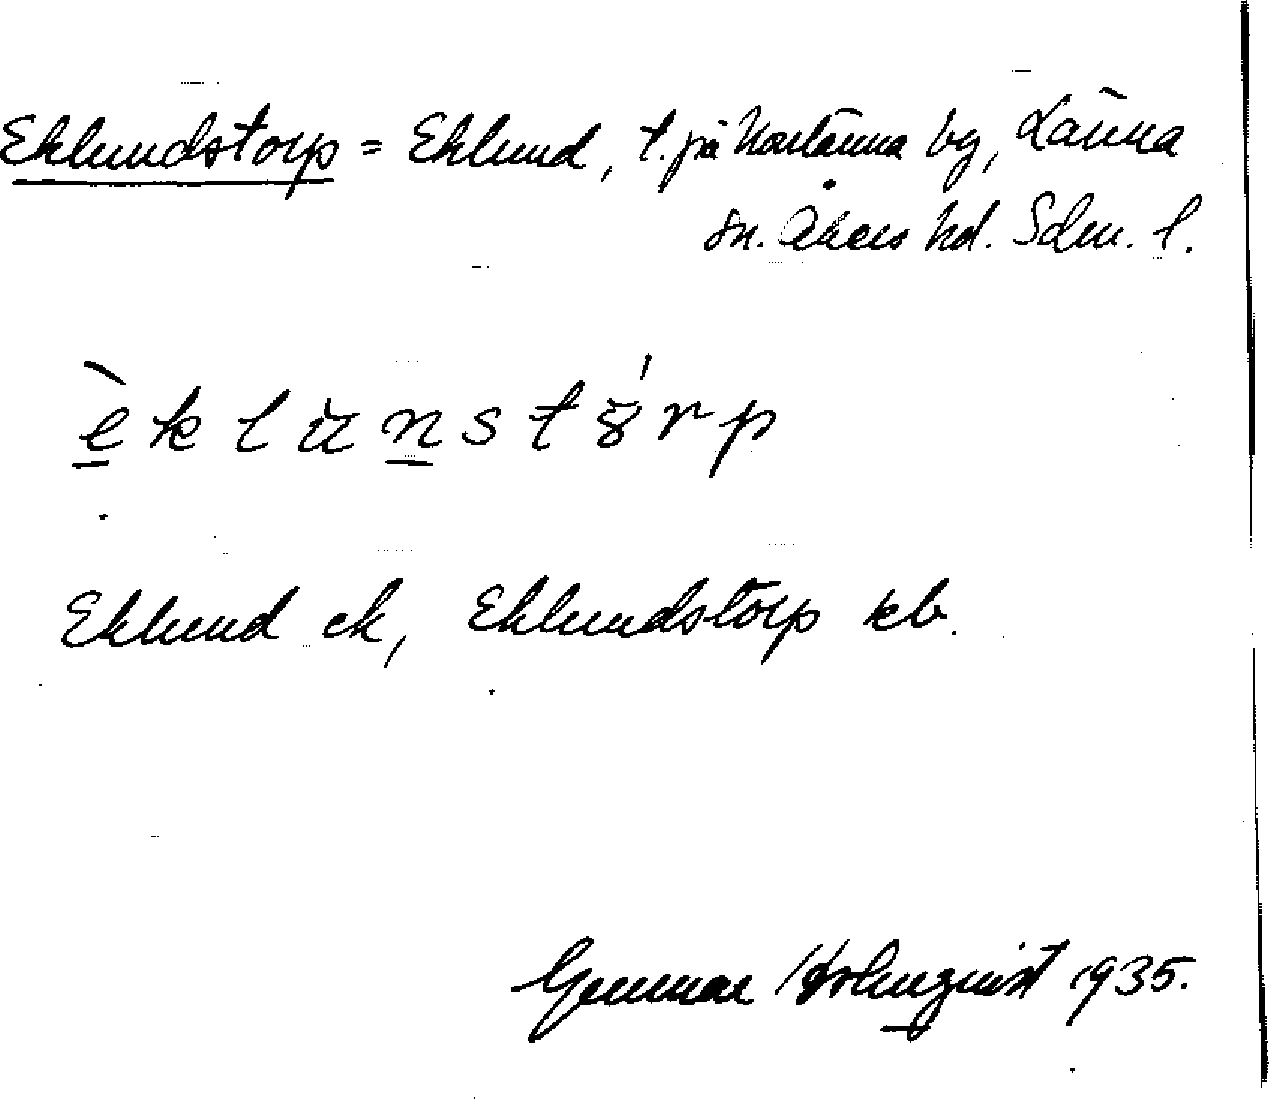 Eklundstorp = Eklund, t. på Norlänna by, Länna
sn. Åkers hd. Sdm. l.
èklùnstórp
Eklund ek, Eklundstorp kb.
Gunnar Holmquist 1935.